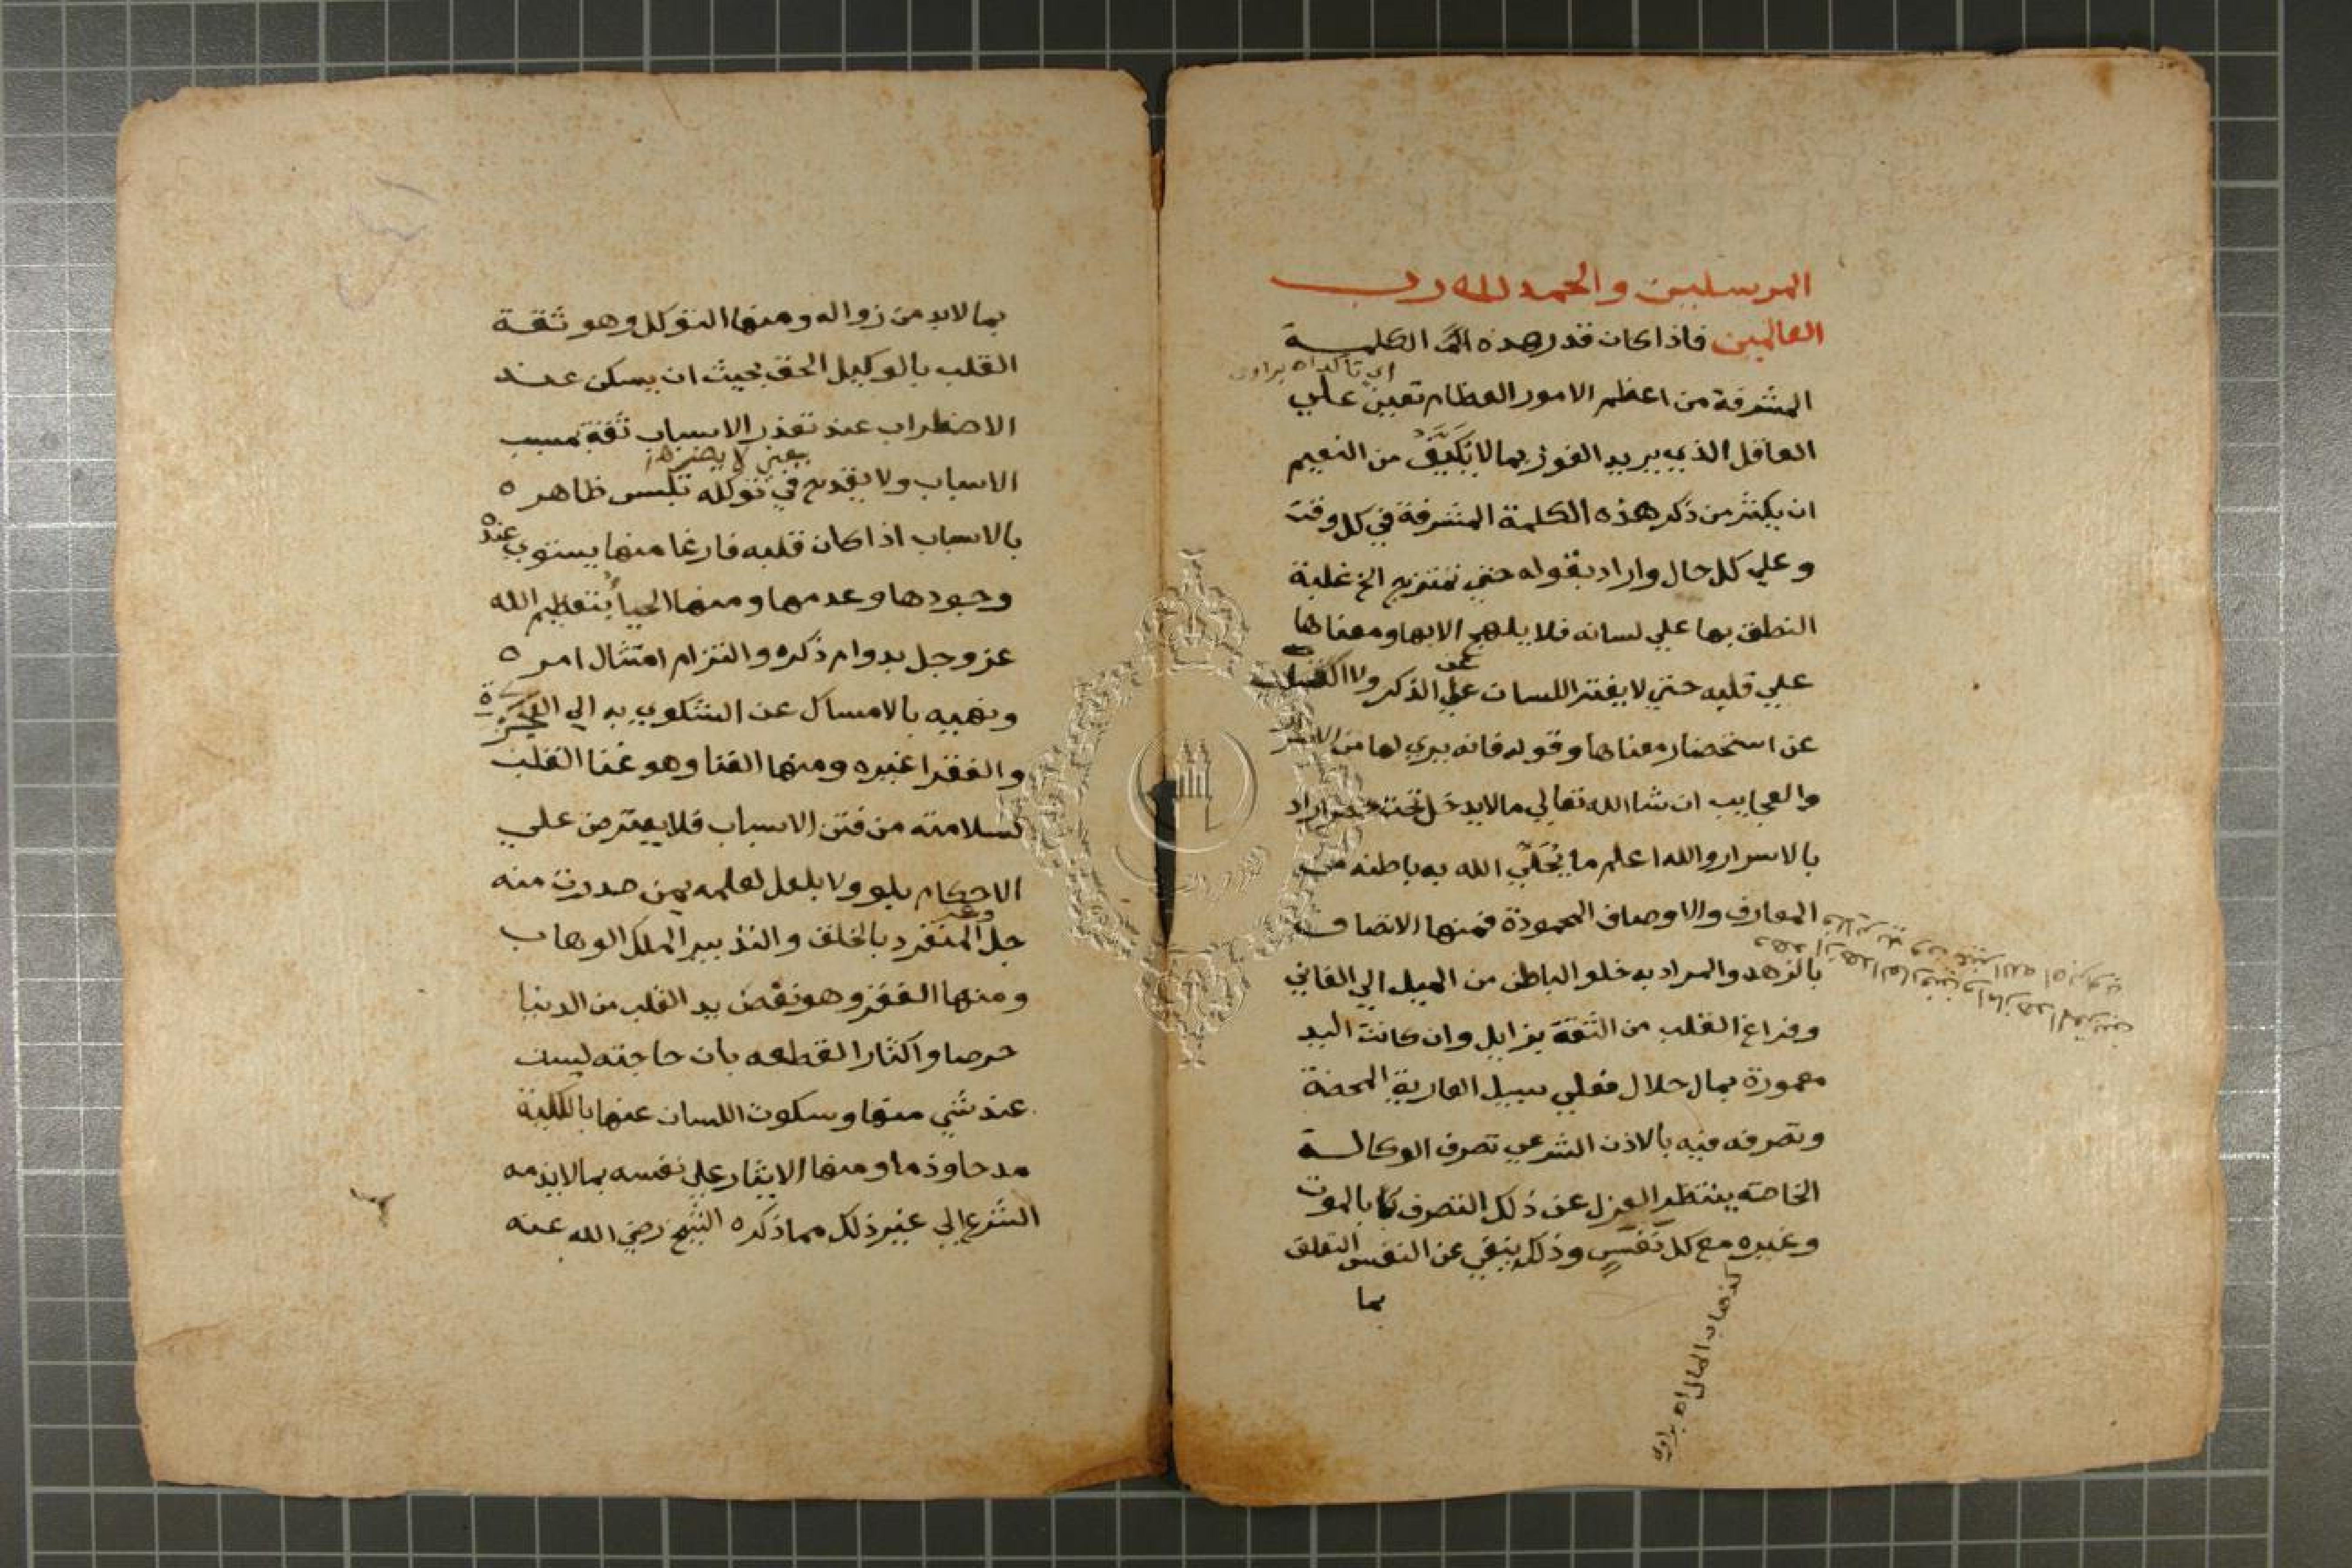 المرسلين والحمد لله رب
العالمين فاذا كان قدر هذه الكلمة
اي تأكد اه براوي
المشرفة من اعظم الامور العظام تعين علي
العاقل الذي يريد الفوز بما لا يُكَيَّفُ من النعيم
ان يكثر من ذكر هذه الكلمة المشرفة في كل وقت
وعلي كل حال واراد بقوله حتي تمتزج الخ غلبة
النطق بها علي لسانه فلا يلهج الا بها ومعناها
علي قلبه حتي لا يفتر اللسان عن الذكر ولا
عن استحضار معناها وقوله فانه يري لها من الاسرار
والعجايب ان شا الله تعالي ما لا يدخل تحت حصر اراد
بالاسرار والله اعلم ما يُحَلِّي الله به باطنه من
المعارف والاوصاف المحمودة فمنها الاتصاف
بالزهد والمراد به خلو الباطن من الميل الي الفاني
وفراغ القلب من الثقة بزايل وان كانت اليد
معمورة بمال حلال فعلي سبيل العارية المحضة
وتصرفه فيه بالاذن الشرعي تصرف الوكالة
الخاصة ينتظر العزل عن ذلك التصرف بالموت
وغيره مع كل نَفَسٍ وذلك ينفي عن النفس التعلق
بما
كذهاب المال اه براوي
بما لابد من زواله ومنها التوكل وهو ثقة
القلب بالوكيل الحق بحيث ان يسكن عند
الاضطراب عند تعذر الاسباب ثقة بمسبب
يعني لا يضر ها
الاسباب ولا يقدح في توكله تلبس ظاهره
بالاسباب اذا كان قلبه فارغا منها يستوي عنده
وجودها وعدمها ومنها الحيا بتعظيم الله
عز وجل بدوام ذكره والتزام امتثال امره
ونهيه بالامساك عن الشكوي به الي العجزة
والفقرا غيره ومنها الغنا وهو غنا القلب
لسلامته من فتن الاسباب فلا يعترض علي
الاحكام بلو ولا بلعل لعلمه بمن صدرت منه
جل وعز المنفرد بالخلق والتدبير الملك الوهاب
ومنها الفقر وهو نفض يد القلب من الدنيا
حرصا واكثارا لقطعه بان حاجته ليست
عند شي منها وسكوت اللسان عنها بالكلية
مدحا وذما ومنها الايثار علي نفسه بما لا يذمه
الشرع الي غير ذلك مما ذكره الشيخ رضي الله عنه